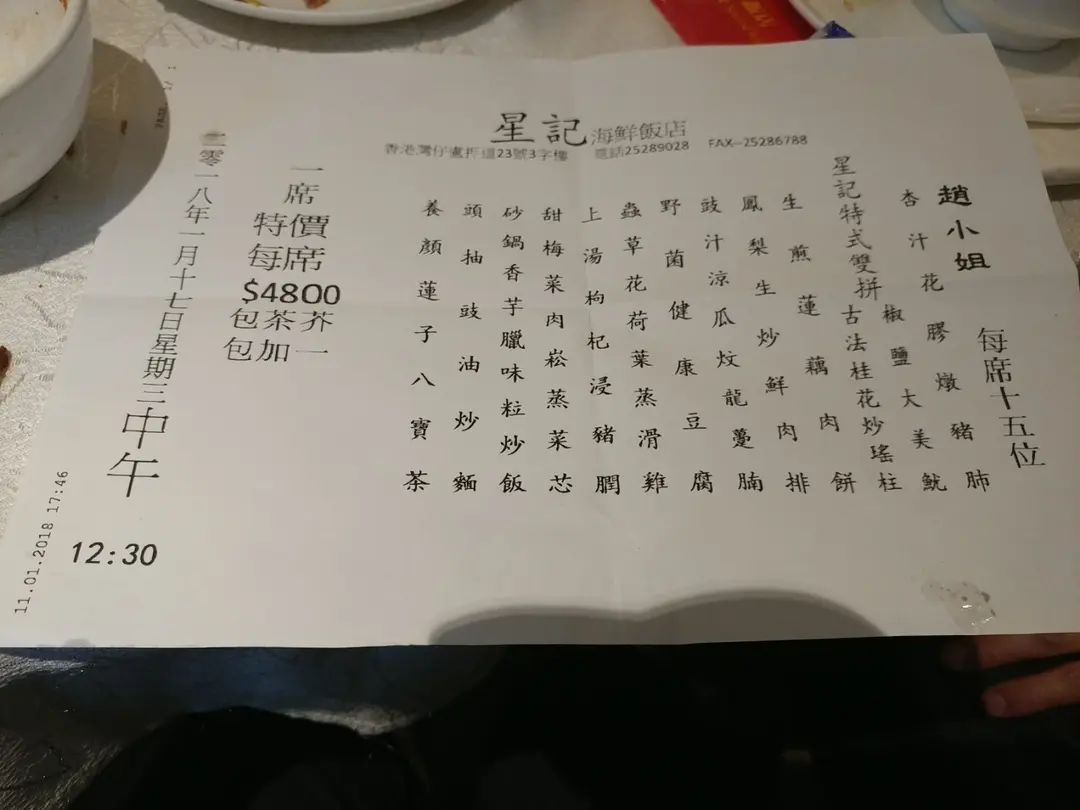 星記海鮮飯店
香港灣仔盧押道23號3字樓 電話25289028 FAX-25286788
趙小姐
每席十五位
杏汁花膠燉豬肺
星記特式雙拼
椒鹽大美魷
古法桂花炒瑤柱
生煎蓮藕肉餅
鳳梨生炒鮮肉排
豉汁涼瓜炆龍躉腩
野菌健康豆腐
蟲草花荷葉蒸滑雞
上湯枸杞浸豬膶
甜梅菜肉崧蒸菜芯
砂鍋香芋臘味粒炒飯
頭抽豉油炒麵
養顏蓮子八寶茶
一席
特價
每席
$4800
包茶芥
包加一
二零一八年一月十七日星期三中午
12:30
11.01.2018 17:46